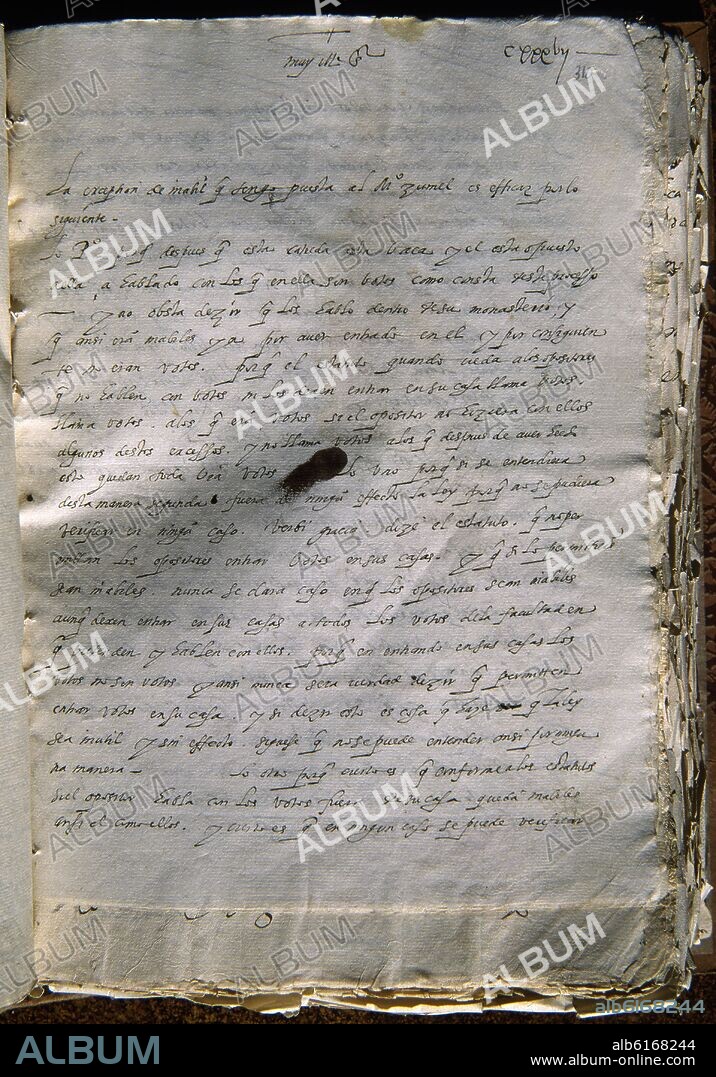 muy Ill.e S.r
cxxxbij
31
La excepcion de inabil q̃ tengo puesta al M.o zumel es efficaz por lo
siguiente -
Lo P.o porq̃ despues q̃ esta catreda esta baca y el esta opuesto
a ella a hablado con los q̃ en ella son botos como consta deste processo
y no obsta dezir q̃ los hablo dentro de su monasterio y
q̃ ansi erã inabiles ya por aver entrado en el y por consiguien
te no eran votos. porq̃ el estatuto quando vieda a los opositores
q̃ no hablen con votos ni los dexen entrar en su casa llama botos.
llama votos. alos q̃ erã votos si el opositor no hiziera con ellos
algunos destos excessos. y no llama votos alos q̃ despues de aver hecho
esto quedan votos lo uno porq̃ si se entendiera
desta manera fuera de ningũ effecto la ley porq̃ no se pudiera
verificar en ningũ caso. Verbi gracia dize el estatuto. q̃ no per
mitan los opositores entrar botos en sus casas. y q̃ si lo permitierẽ
sean inabiles. nunca se dara caso en q̃ los opositores sean inabiles
aunq̃ dexen entrar en sus casas a todos los votos dela facultad en
q̃ y hablen con ellos. porq̃ en entrando en sus casas los
votos no son votos. y ansi nunca sera verdad dezir q̃ permiten
entrar votos en su casa. y si dezir esto es cosa q̃ haze q̃ la ley
sea inutil y sin effecto. siguese q̃ no se puede entender ansi por ningu
na manera - Lo otro porq̃ cierto es q̃ conforme a los estatutos
si el opositor habla con los votos fuera de su casa quedã inabiles
ansi el como ellos. y cierto es q̃ en ningun caso se puede verificar
ALBUM
alb6168244
ALBUM
alb6168244
www.album-online.com